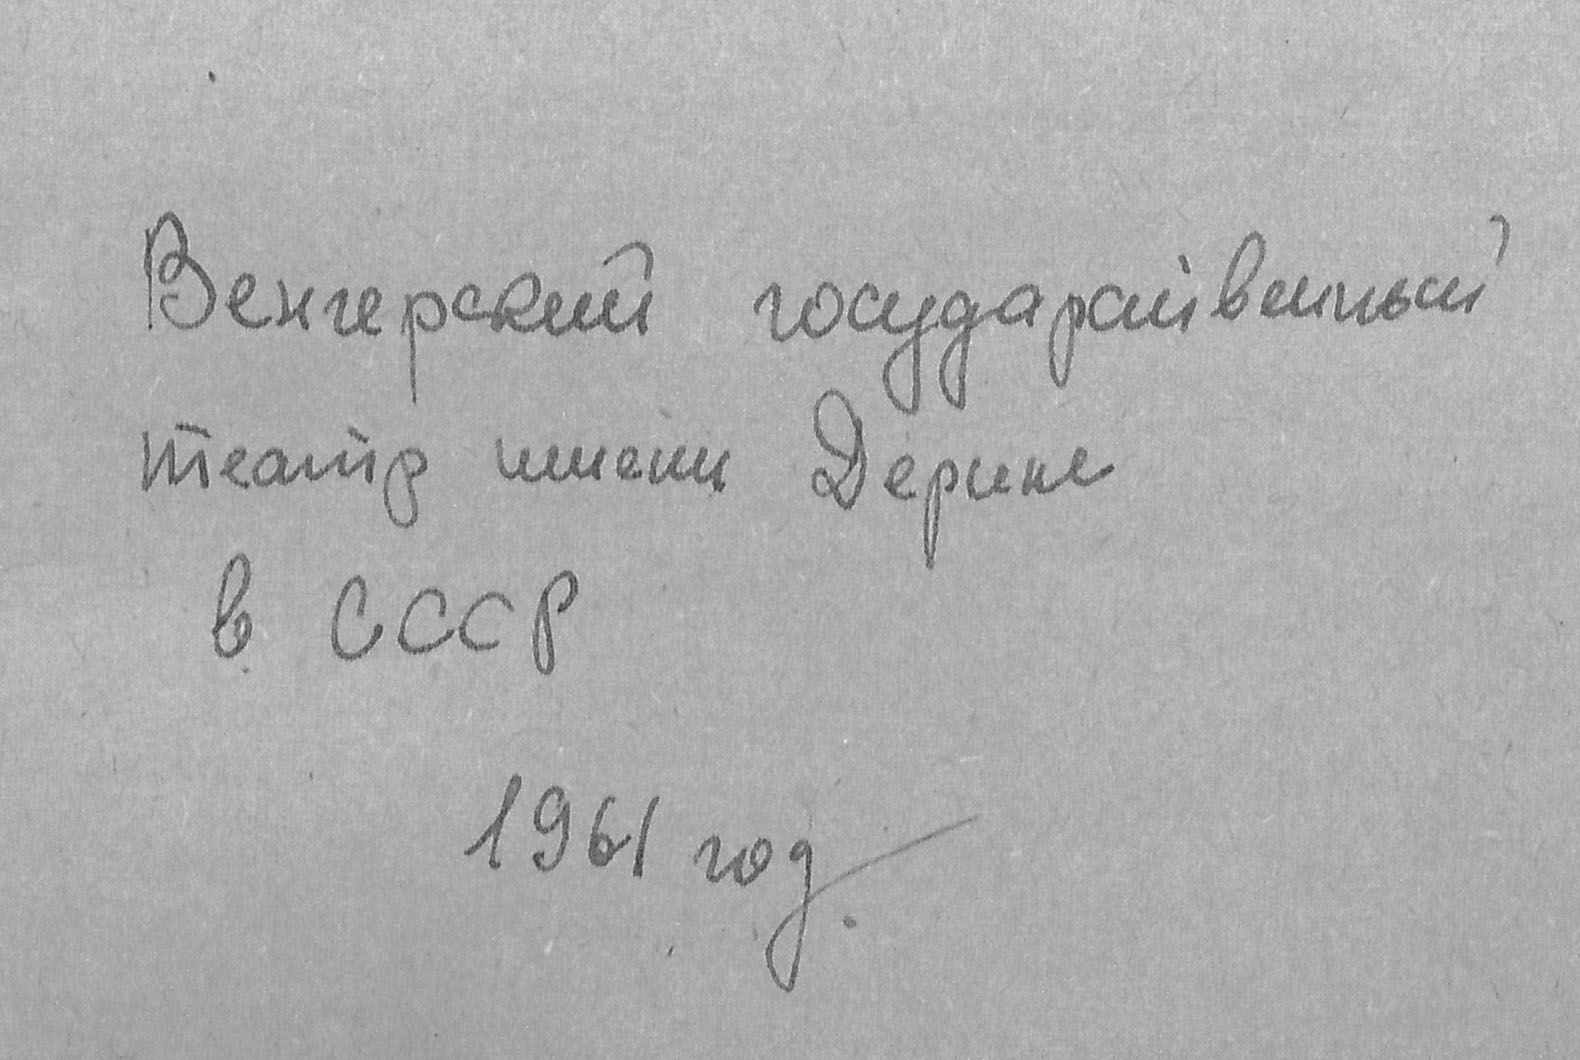 Венгерский государственный
театр имени Дерине
в СССР
1961 год.